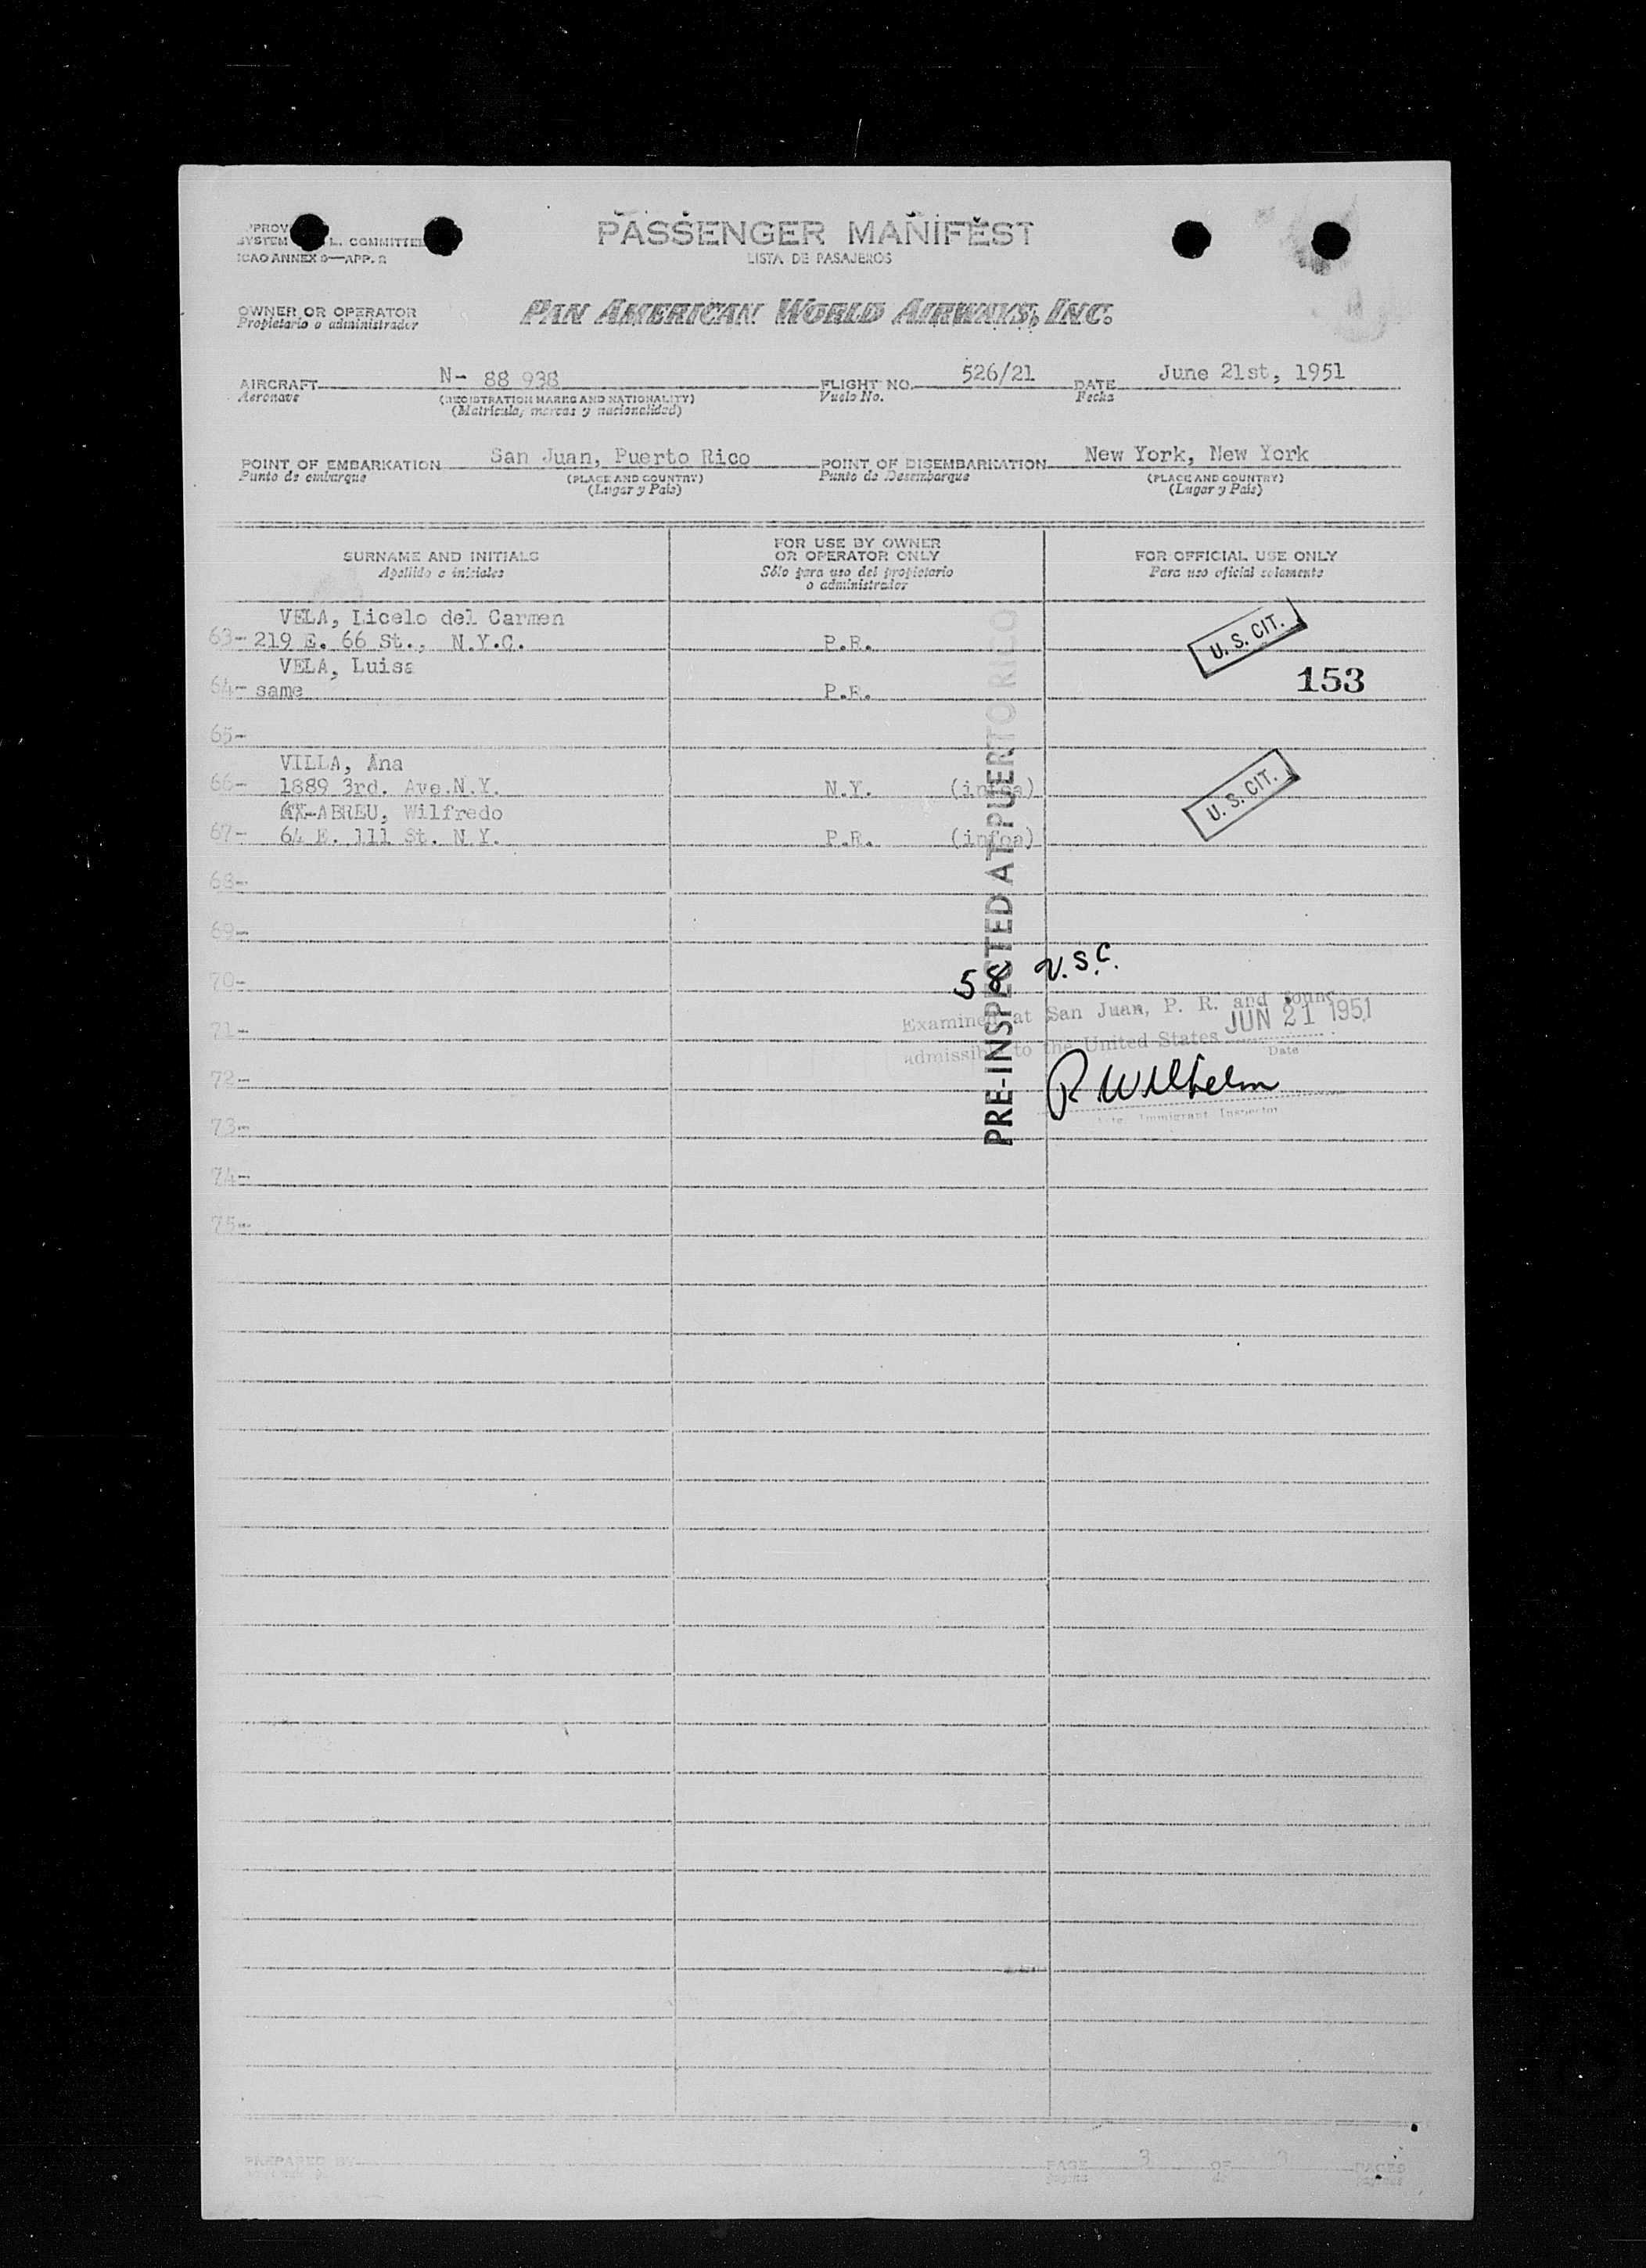 PASSENGER MANIFEST
LISTA DE PASAJEROS
L. COMMITTEE
ICAO ANNEX 9—APP. 2
OWNER OR OPERATOR
Propietario o administrador
PAN AMERICAN WORLD AIRWAYS, INC.
AIRCRAFT N- 88 938 FLIGHT NO. 526/21 DATE June 21st, 1951
Aeronave (REGISTRATION MARKS AND NATIONALITY) Vuelo No. Fecha
(Matricula, marcas y nacionalidad)
POINT OF EMBARKATION San Juan, Puerto Rico POINT OF DISEMBARKATION New York, New York
Punto de embarque (PLACE AND COUNTRY) Punto de Desembarque (PLACE AND COUNTRY)
(Lugar y País) (Lugar y País)
SURNAME AND INITIALS
Apellido e iniciales
FOR USE BY OWNER
OR OPERATOR ONLY
Sólo para uso del propietario
o administrador
FOR OFFICIAL USE ONLY
Para uso oficial solamente
VELA, Licelo del Carmen
63- 219 E. 66 St., N.Y.C. P.R. U. S. CIT.
VELA, Luisa
64- same P.R. 153
65-
VILLA, Ana
66- 1889 3rd. Ave.N.Y. N.Y. (infoa) U. S. CIT.
ABREU, Wilfredo
67- 64 E. 111 St. N.Y. P.R. (infoa)
68-
69-
70- 58 U.S.C.
71-
Examined at San Juan, P. R. and found
admissible to the United States JUN 21 1951
Date
72- R Wilhelm
Immigrant Inspector
73-
74-
75-
PRE-INSPECTED AT PUERTO RICO
PREPARED BY PAGE 3 OF 3 PAGES